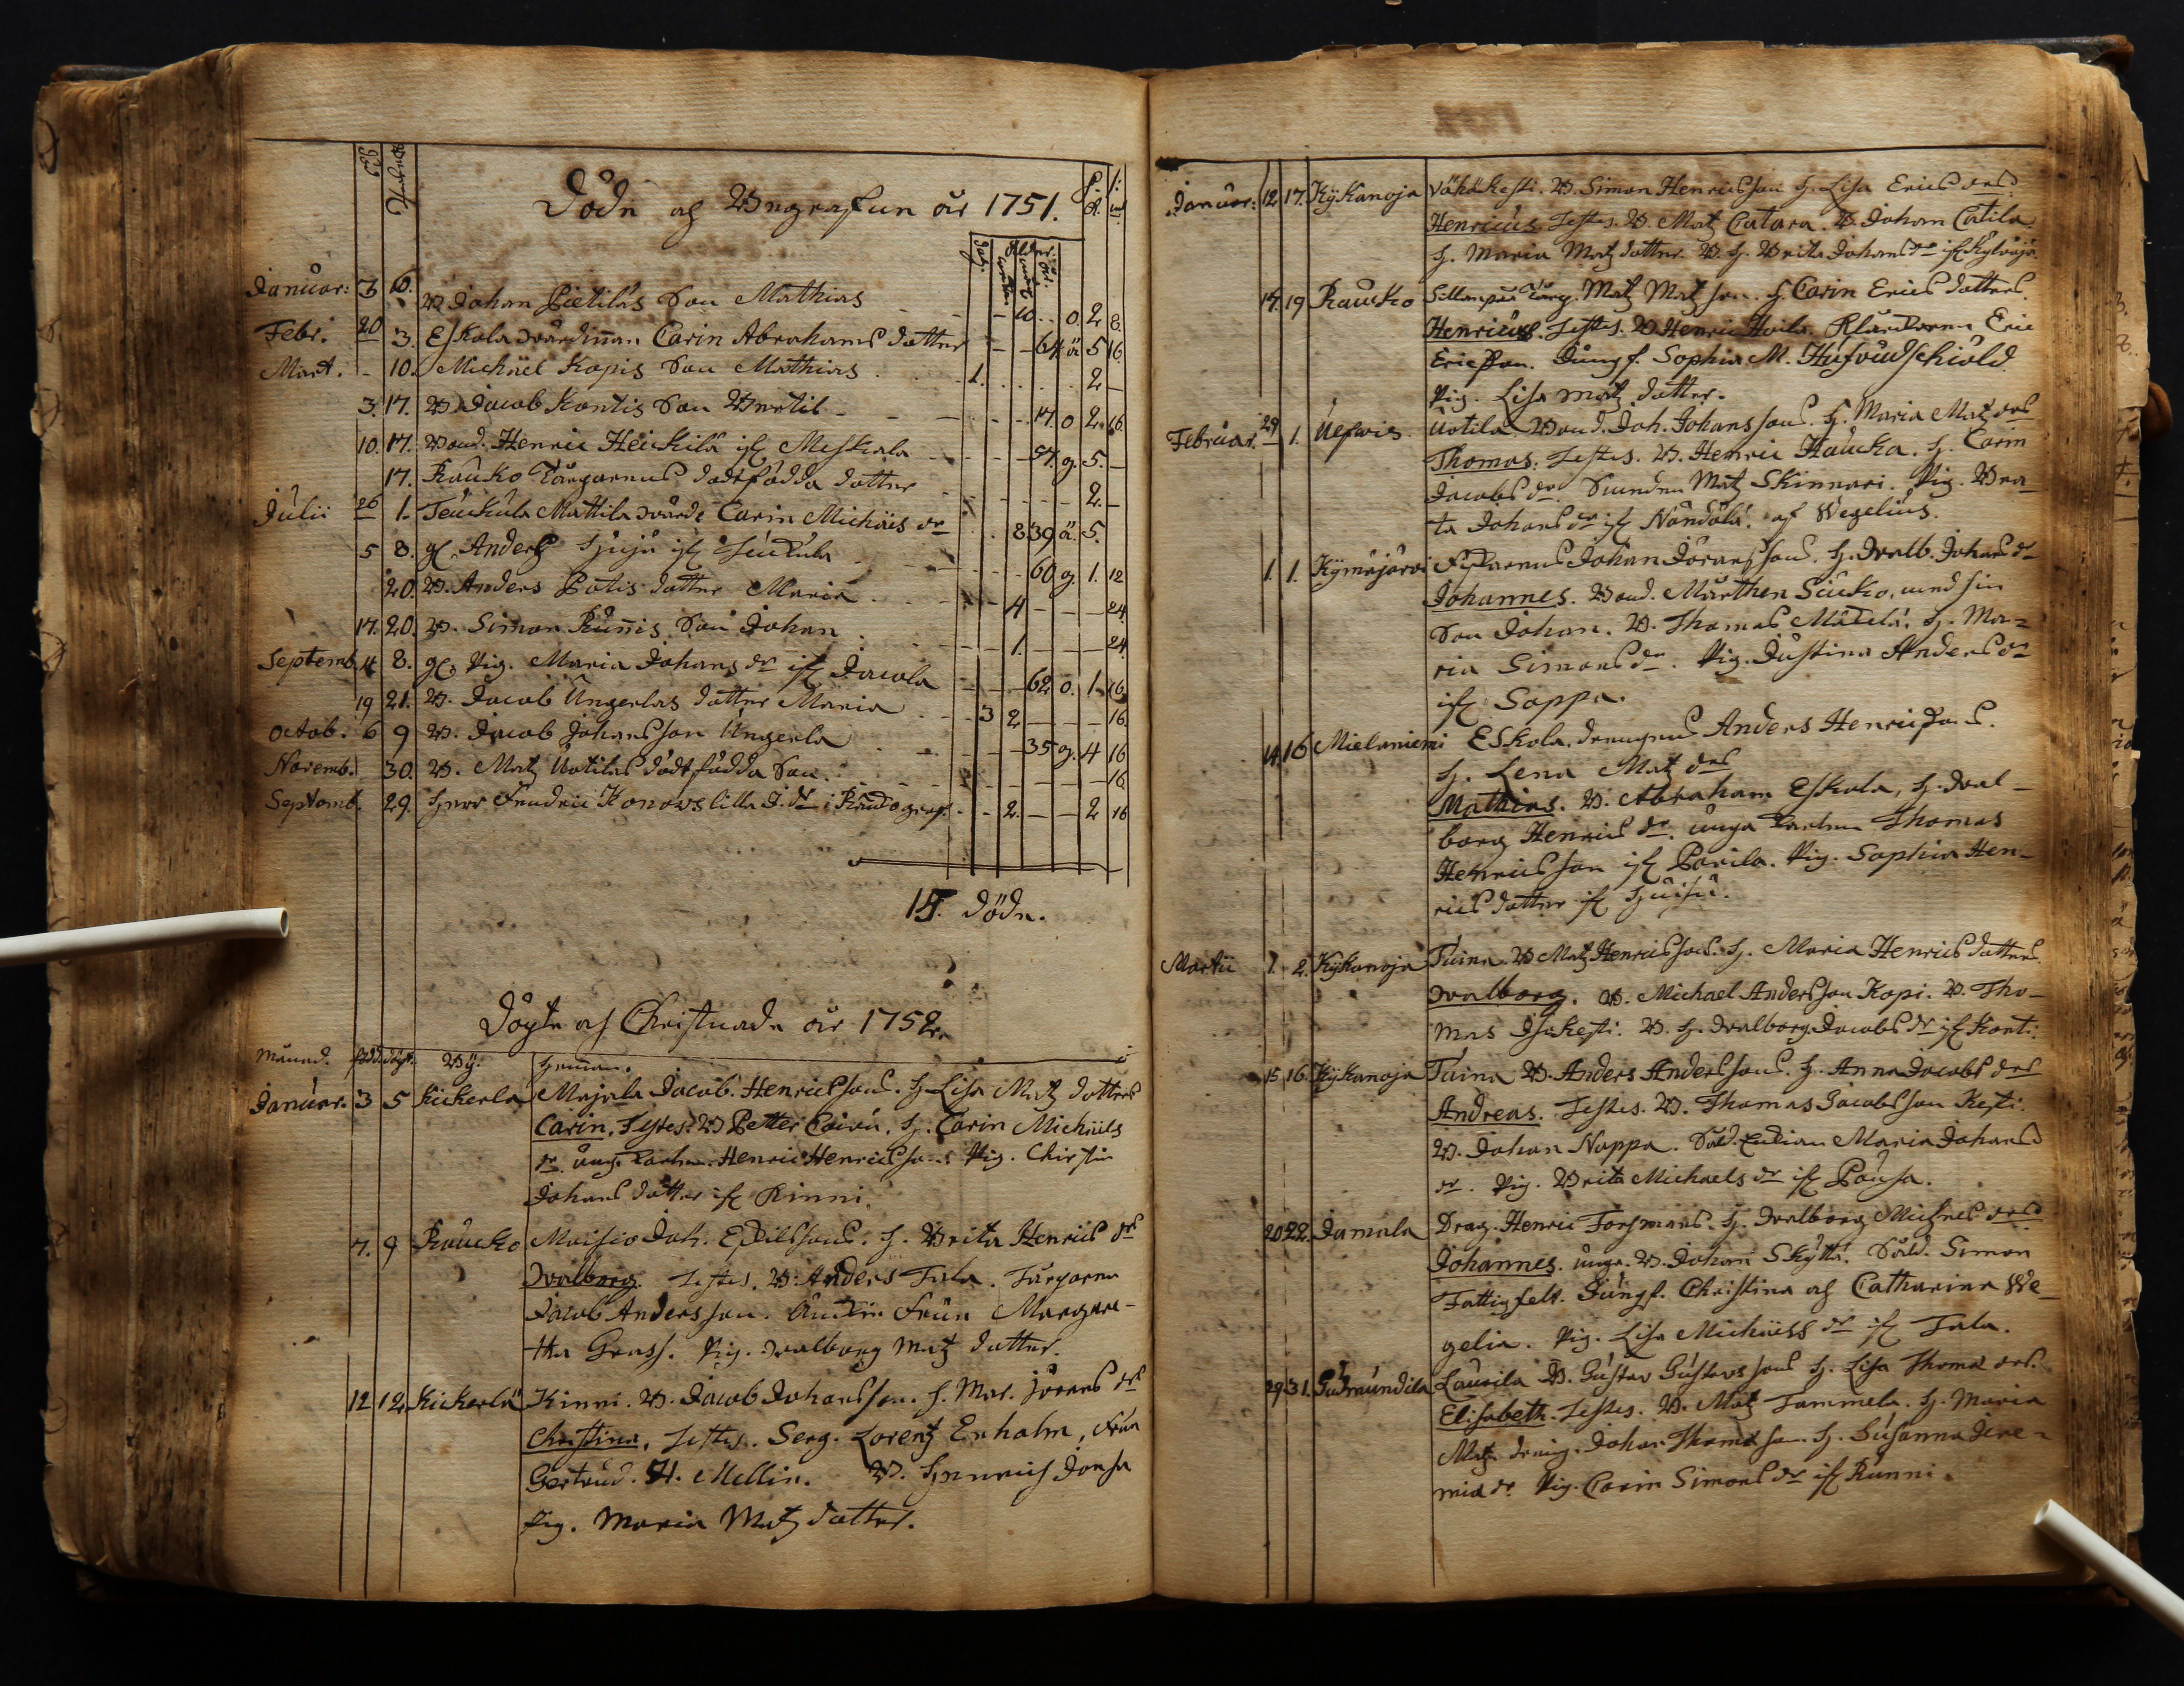 Döde och Begrafne år 1751.
Januar: 3 6. B. Johan Pietiläs Son Mathias - - 10. . 0. 2 8.
Febr. 20 3. Eskola wärdinnan Carin Abrahams dotter - - 64 ä 5 16
Mart. - 10. Michäel Kopis Son Mathias . . 1. . . . . 2 -
3. 17. B. Jacob Kontis Son Bertil - - - 17. 0 2. 16.
10. 17. Bond. Henric Heickilä if. Meskala - - 57. g. 5. -
17. Rauko Torparens dödfödda dotter - - 2. -
Julii 26 1. Teuckula Mattila wärd: Carin Michäels dr . . 8 39 ä. 5.
5 8. gl. Anders - - 60 g. 1. 12
20. B. Anders Potis dotter Maria . - - 4 - - - 24.
17. 20. B. Simon Runnis Son Johan . - - 1. - - - 24.
Septemb. 4 8. gl. Pig. Maria Johans dr if. Jacola - - - 62 0. 1. 16
19 21. B. Jacob Ungerlas dotter Maria . - 3 2 - - - 16.
Octob. 6 9 B. Jacob Johansson Ungerla . - - - 35 g. 4 16
Novemb. 30. B. Matz Uotilas dödfödda Son. - - - 16
Septemb. 29. Herr Fendric Konows lilla - 2. - - 2 16
15. döde.
Döpte och Christnade år 1752.
Månad. född. döpt. By. Heman.
Januar. 3 5 Kickerla Majala Jacob. Henricsson. H. Lisa Matz dotters
Carin. Testes. B. Petter Coivu. H. Carin Michäels
dr. ung. Karlen. Henric Henricsson. Pig. Chirstin
Johans dotter if. Rinni.
7. 9 Raucko Moisio Joh. Eskilsson. H. Brita Henrics drs
Walborg. Testes. B. Anders Tala. Torparen
Jacob Andersson. Fruun Margare-
tha Grass. Pig. Walborg Matz dotter.
12 12 Kickerlä Kinni. B. Jacob Johansson. H. Mar. Jörans drs
Christina. Testes. Serg. Lorentz Enholm, Frun
Gertrud. H. Mellin. B. Henrich Jonsa
Pig. Maria Matz dotter.
Januar: 12 17. Kykanoja Vähäkesti. B. Simon Henricsson H. Lisa Erics drs:
Henricus. Testes. B. Matz Catara. B. Johan Catila
H. Maria Matz dotter. B. H. Brita Johans dr if.
17. 19 Raucko Sillanpää Torp. Matz Matzson. H. Carin Erics dotters.
Henricus. Testes. B. Henric Hoila. Klåckaren Eric
Ericsson. Jungf. Sophia M. Hufvudschiöld
Pig. Lisa Matz dotter.
Februar. 29 1. Uotila Bond. Joh. Johanssons. H. Maria Matz drs
Thomas. Testes. B. Henric Haucka. H. Carin
Jacobs dr. Matz Skinnari. Pig. Bri-
ta Johans dr if. Nändälä. af Wegelius.
1. 1. Kymäjärvi Johan Jöransson. H. Walb. Johans dr
Johannes. Bond. Mårthen Siuko, med sin
Son Johan. B. Thomas Mäkelä. H. Ma=
ria Simons dr. Pig. Justina Anders dr
if. Soppa.
14. 16 Mielaniemi Eskola. drengens Anders Henricsson.
H. Lena Matz drs
Mathias. B. Abraham Eskola, H. Wal-
borg Henrics dr. unga Karlen Thomas
Henricsson if. Porila. Pig. Sophia Hen-
rics dotter if.
Martii 1. 2. Kykanoja Tuina. B. Matz Henricsson. H. Maria Henrics dotters
Walborg. B. Michael Andersson Kopi. B. Tho-
mas Isokesti. B. H. Walborg Jacobs dr if. Konti.
15 16. Kykanoja Tuina B. Anders Andersson. H. Anna Jacobs drs
Andreas. Testes. B. Thomas Jacobsson Kesti.
B. Johan Noppa. Sold. Enckian Maria Johans
dr. Pig. Brita Michaels dr if. Pousa.
20 22. Jamala Drag. Henric Forsmans. H. Walborg Michels drs
Johannes. unga. B. Johan Skyttä. Sold. Simon
Fattigfelt. Jungf. Christina och Catharina We-
gelia. Pig. Lisa Michäels dr if. Tala.
29 31. Gudmundila Laurila B. Gustav Gustavsson H. Lisa Thomæ drs.
Elisabeth. Testes. B. Matz Tammela. H. Maria
Matz. dreng. Johan Thomæson. H. Susanna Jere=
miæ dr. Pig. Carin Simons dr if. Runni.